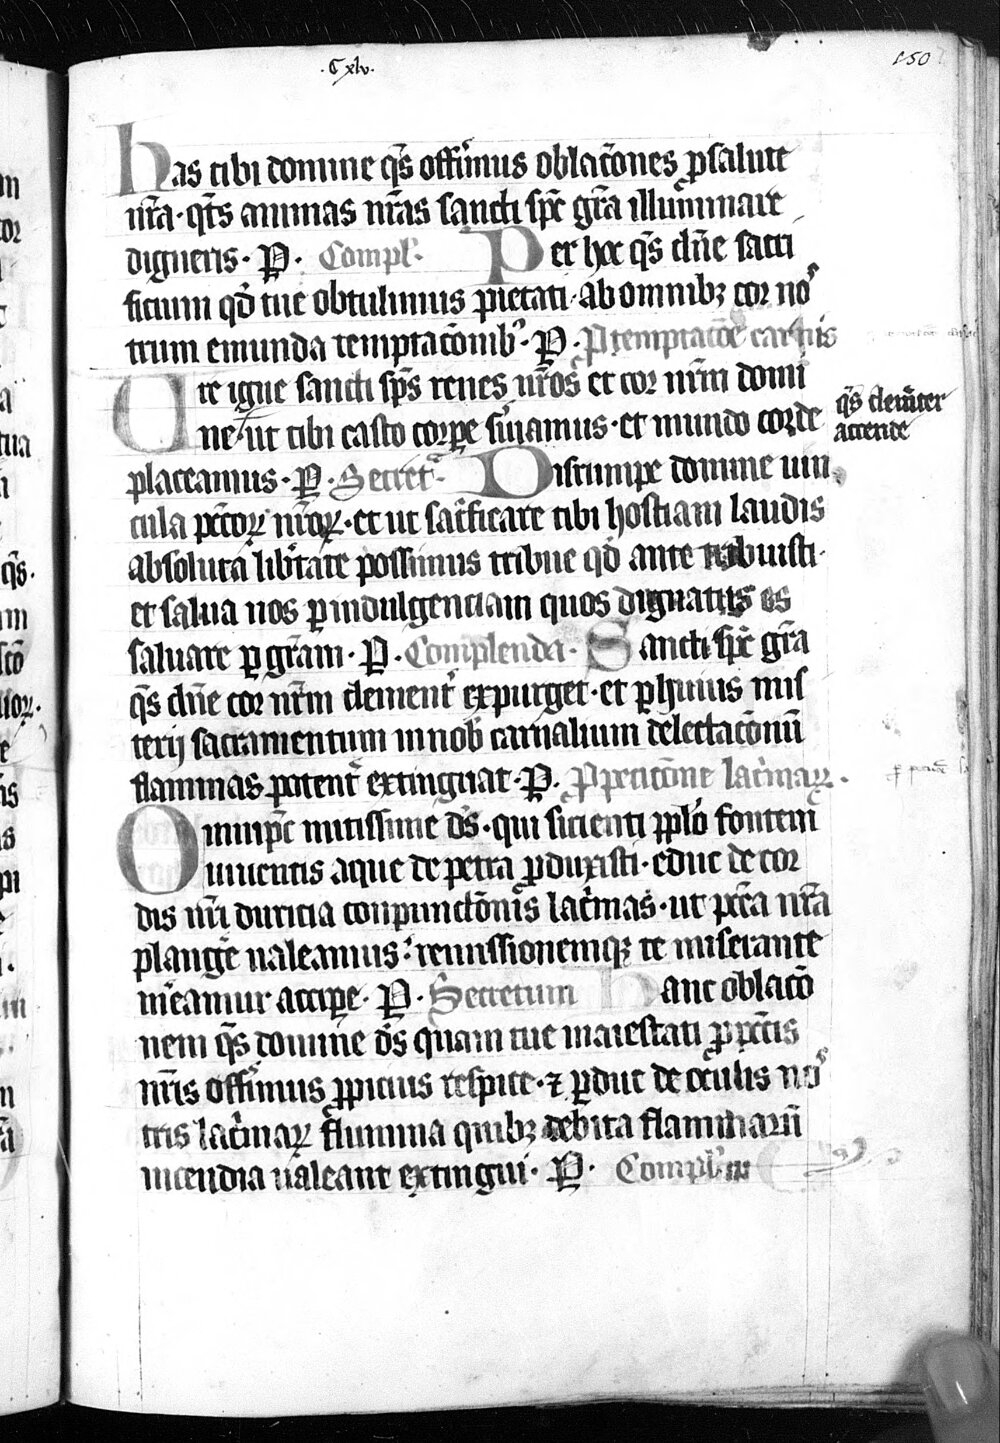 .Cxlv.
150
Has tibi domine q̄s offerim͛us oblac̄ones ꝓ salute
nr̄a · qt̄s animas nr̄as sancti spc̄ gr̄a illuminare
digneris · P. Compl̄. Per hec q̄s dn̄e sacri
ficium qd̄ tue obtulimus pietati · ab omnibꝫ cor no͛
trum emunda temptac̄onib⁹ · P. P temptac̄oe carnis
Ure igne sancti sp̄s renes nr̄os et cor nr̄m domi
ne · ut tibi casto corꝑe ẜuiamus · et mundo corde
q̄s clem̄ter
attende
placeamus · P. Secret̄ · Disrumpe domine uin
cula pcc̄oꝝ nr̄oꝝ · et ut sac̄ficare tibi hostiam laudis
absoluta lib̄tate possimus tribue qd̄ ante tribuisti ·
et salua nos ꝑ indulgenciam quos dignatus es
saluare ꝑ gr̄am · P. Complenda · Sancti spc̄ gr̄a
q̄s dn̄e cor nr̄m clement̄ expurget · et ꝑ huius mis
terij sacramentum in nob̄ carnalium delectac̄onū
flammas potent̄ extinguat · P. P peticōne lac̄maꝝ .
Omnip̄c mitissime ds̄ · qui sicienti pplō fontem
uiuentis aque de petra ꝓduxisti · educ de cor
dis nr̄i duricia conpunctōnis lac̄mas · ut pcc̄a nr̄a
plangē ualeamus · remissionemqꝫ te miserante
m̄eamur accipe · P. Secretum Hanc oblacō
nem q̄s domine ds̄ quam tue maiestati ꝓ pcc̄is
nr̄is offerimus ꝓpicius respice · ⁊ ꝓduc de oculis no͛
tris lac̄maꝝ flumina quibꝫ debita flammarū
incendia ualeant extingui · P. Compl̄